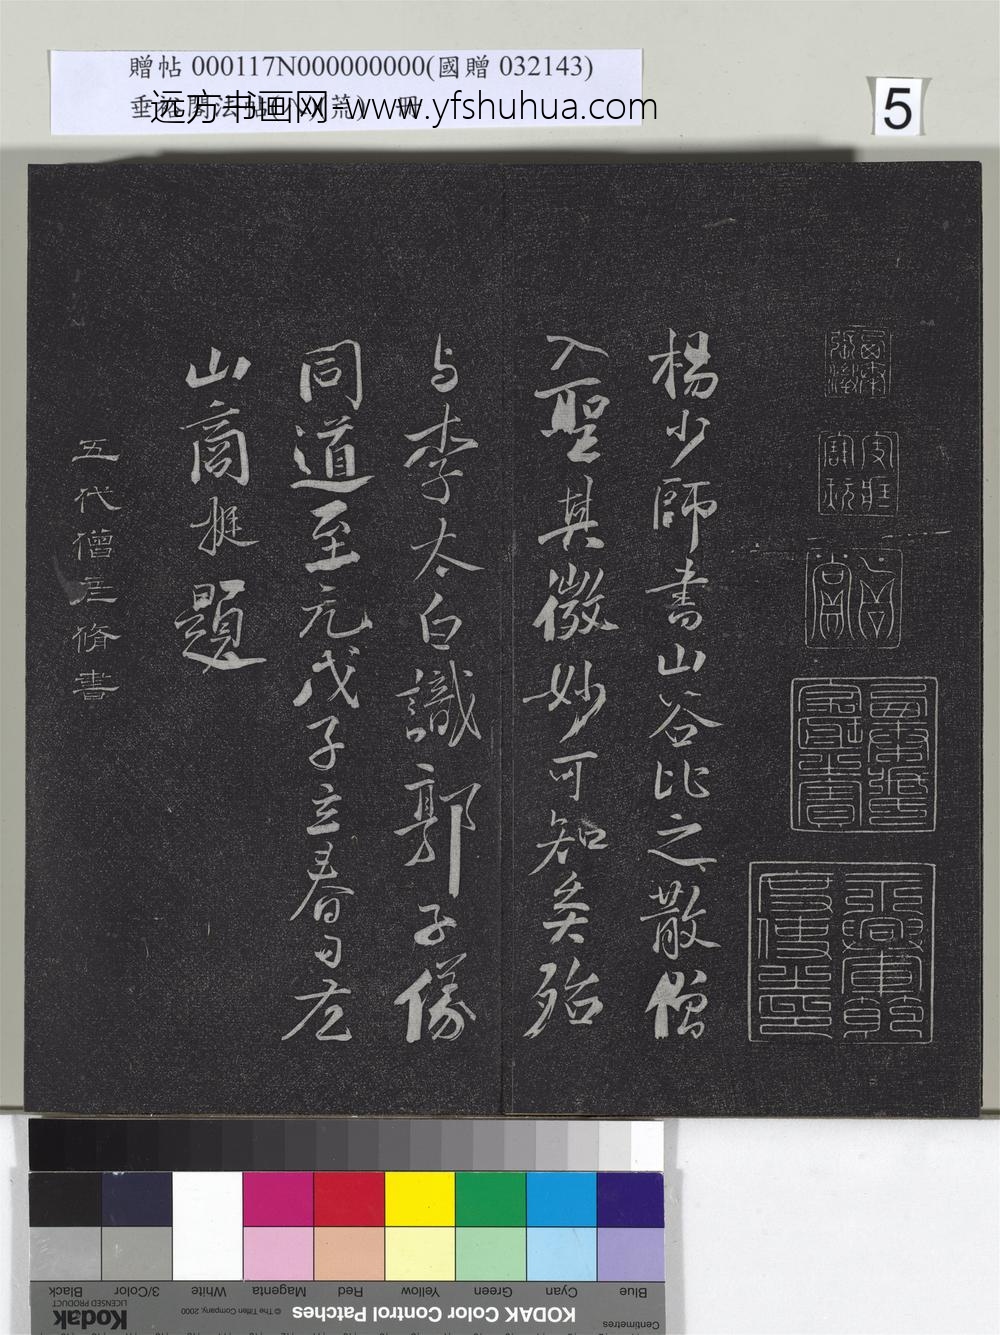 贈帖 000117N000000000(國贈 032143)
远方书画网-www.yfshuhua.com
5
楊少師書山谷比之散僧
入聖其微妙可知矣殆
与李太白識郭子儀
同道至元戊子立春日左
山商挺題
五代僧彥脩書
KODAK Color Control Patches
© The Tiffen Company, 2000
Kodak
LICENSED PRODUCT
Centimetres
Blue
Cyan
Green
Yellow
Red
Magenta
White
3/Color
Black